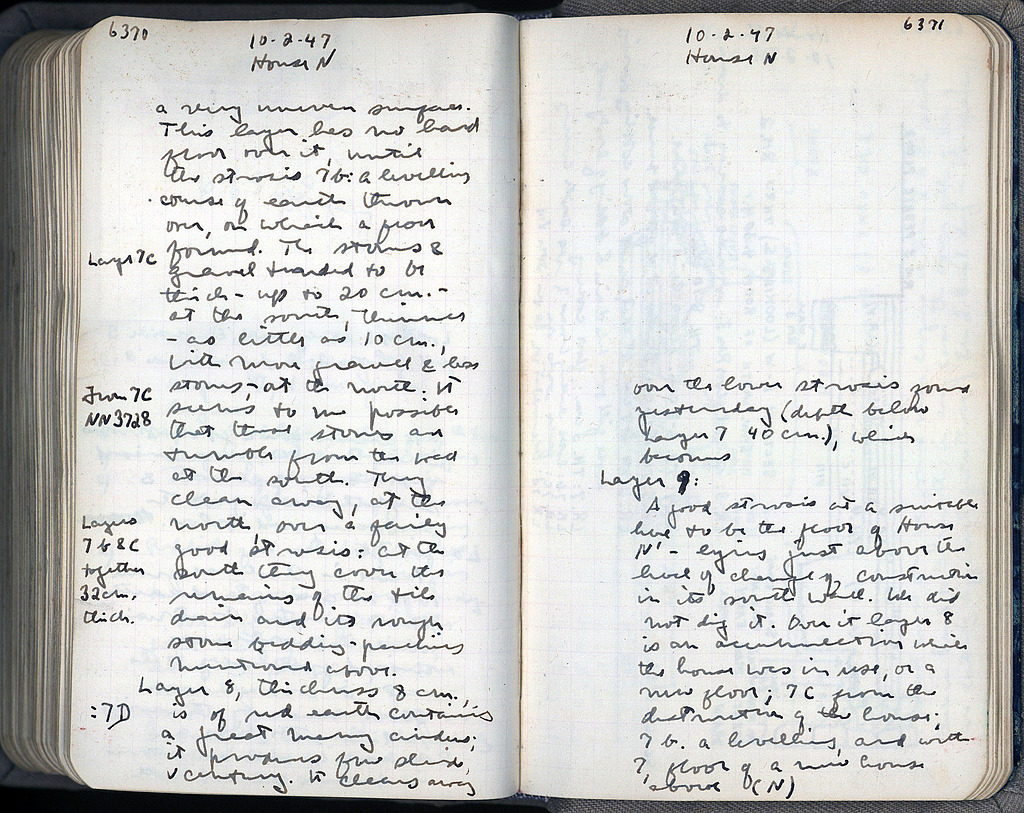 6370
10-2-47
House N
a very uneven surface.
This layer has no hard
floor over it, until
the strosis 7b: a levelling
course of earth thrown
over, on which a floor
formed. The stones &
Layer 7C
gravel tended to be
thick - up to 20 cm. -
at the south, thinner
- as little as 10 cm.,
with more gravel & less
stones, - at the north. It
From 7C
NN3728
seems to me possible
that these stones are
tumble from the wall
at the south. They
clean away, at the
north over a fairly
good strosis: at the
south they cover the
remains of the tile
drain and its rough
stone bedding-packing
mentioned above.
Layers
7b & C
together
32cm.
thick.
Layer 8, thickness 8 cm.,
:7D
is of red earth containing
a great many cinders;
it produces few sherds,
V century. It cleans away
6371
10-2-47
House N
over the lower strosis found
yesterday (depth below
Layer 7 40 cm.), which
becomes
Layer 9:
A good strosis at a suitable
level to be the floor of House
N' - lying just above the
level of change of construction
in its south wall. We did
not dig it. Over it layer 8
is an accumulation while
the house was in use, or a
new floor; 7C from the
destruction of the house;
7b. a levelling, and with
7, floor of a new house
above (N)